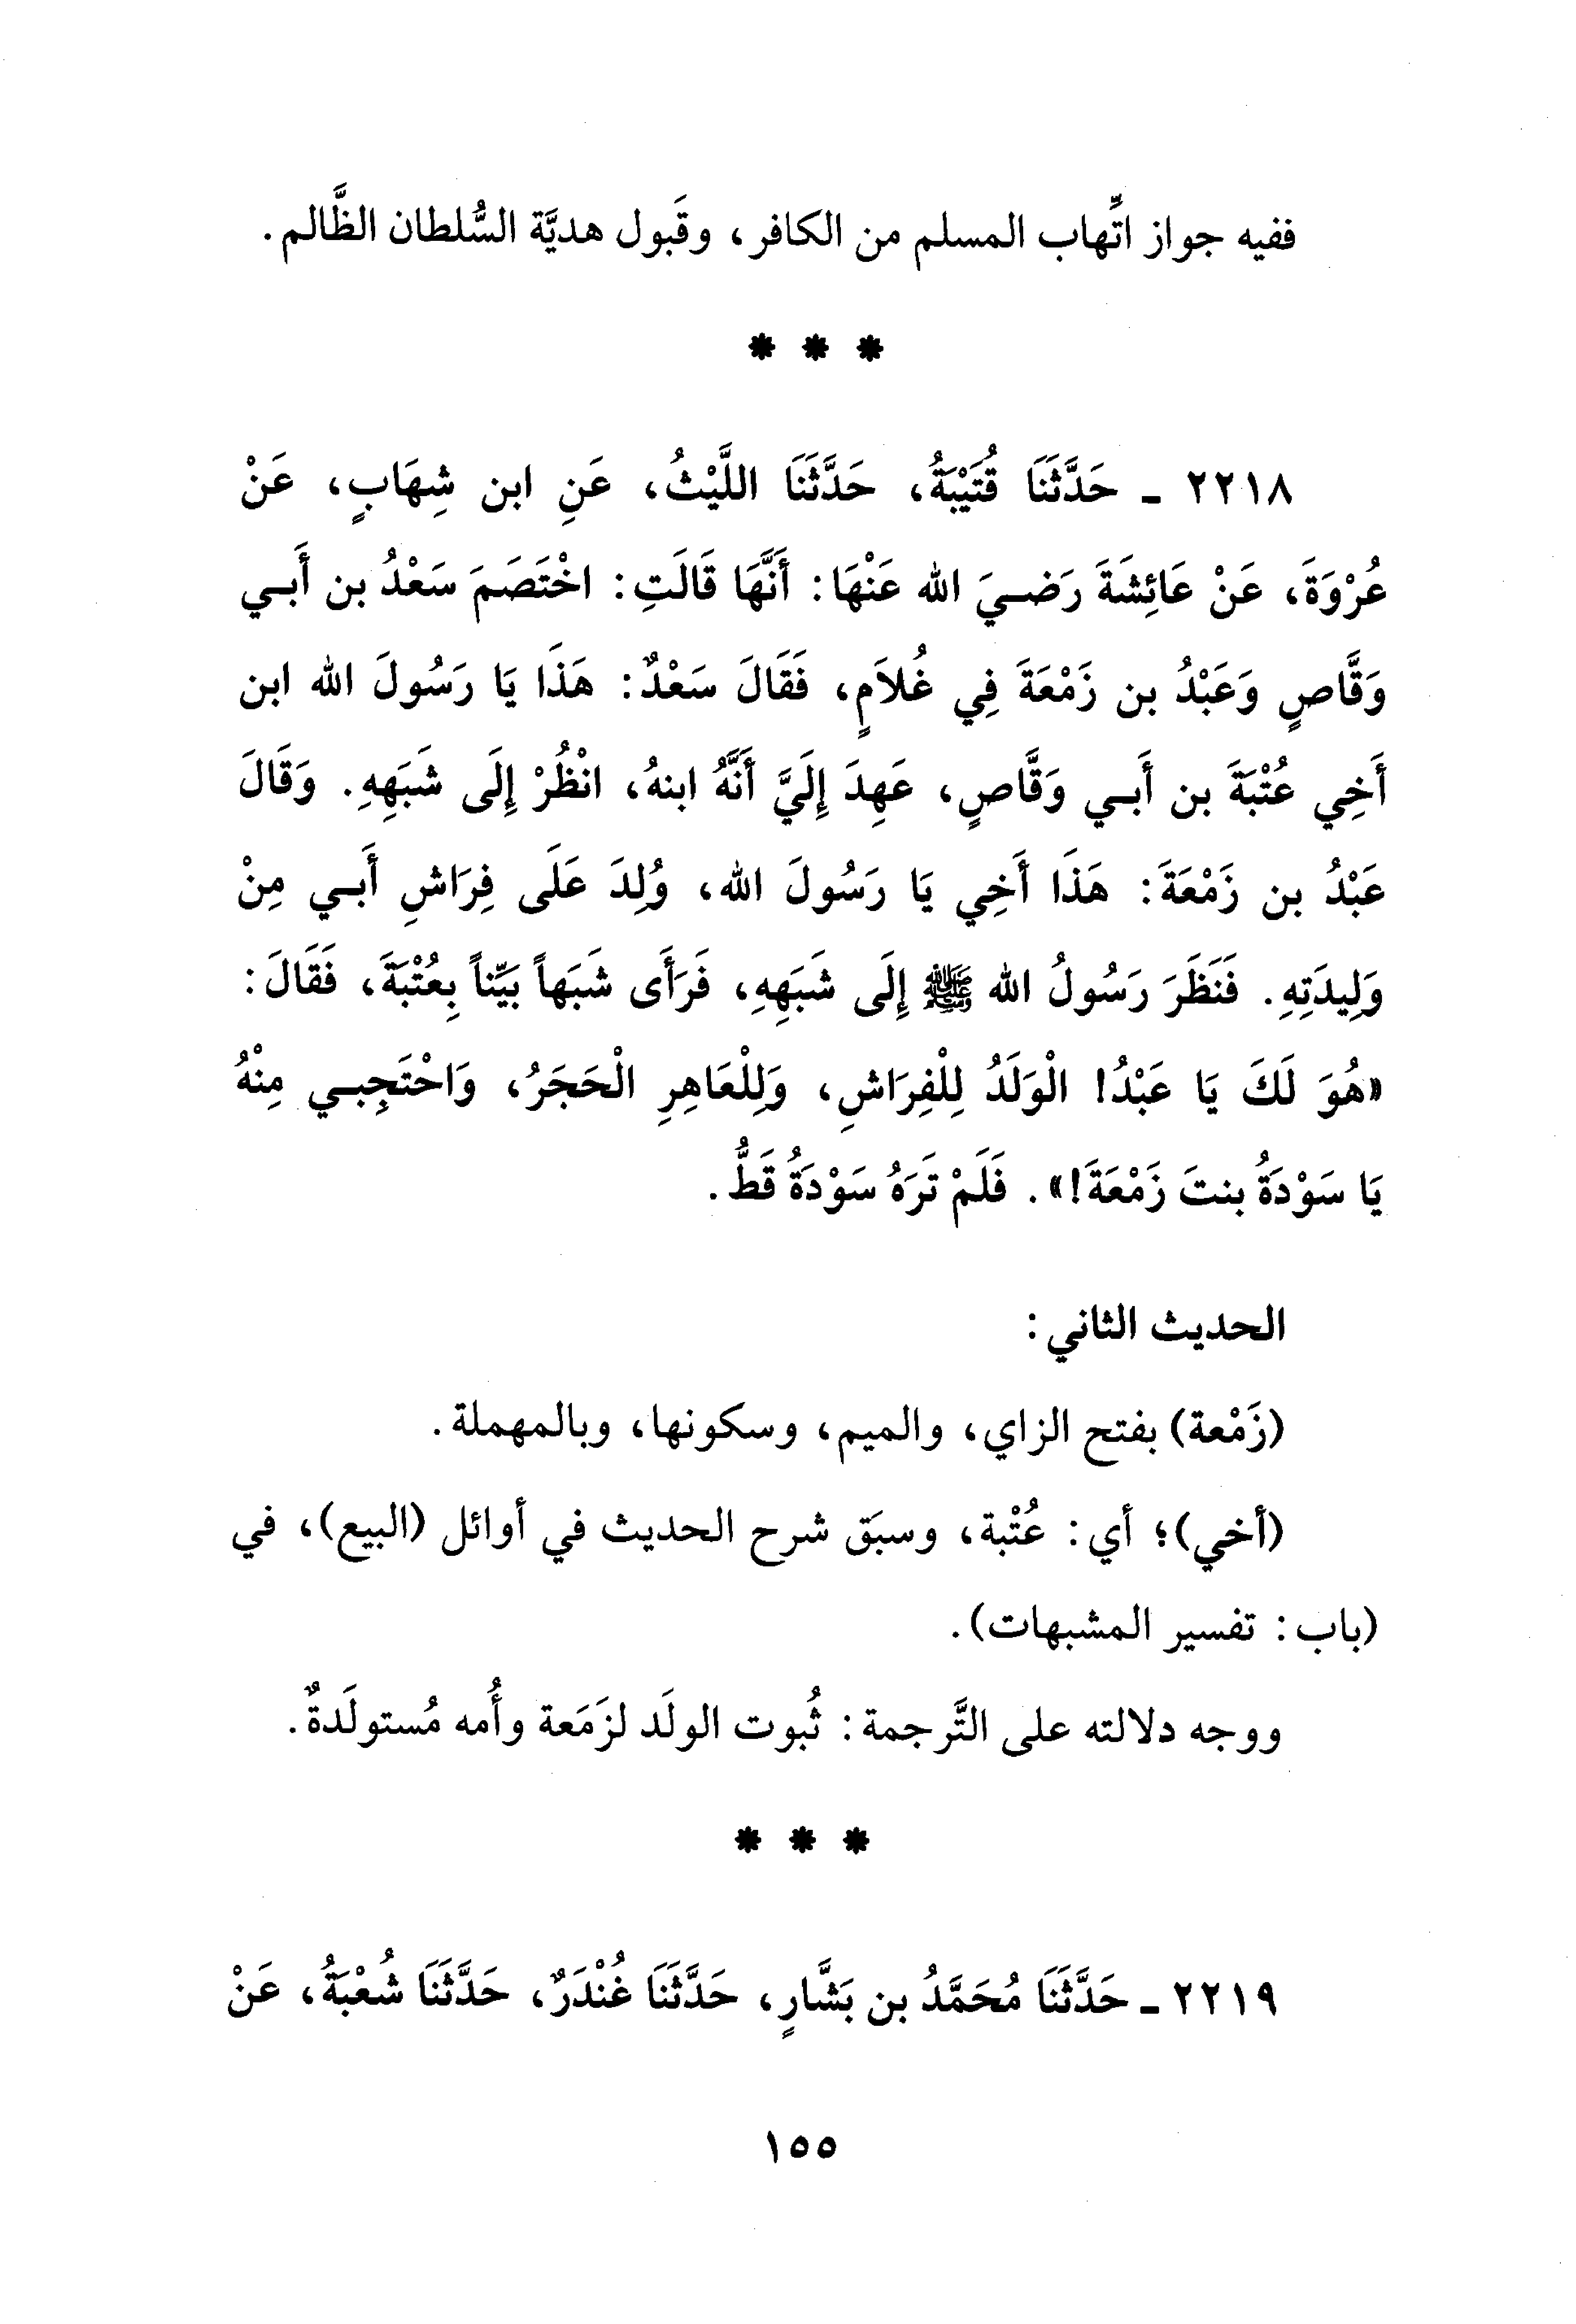 ففيه جواز اتِّهاب المسلم من الكافر، وقَبول هديَّة السُّلطان الظَّالم.
* * *
٢٢١٨ ـ حَدَّثَنَا قُتَيْبَةُ، حَدَّثَنَا اللَّيْثُ، عَنِ ابن شِهَابٍ، عَنْ
عُرْوَةَ، عَنْ عَائِشَةَ رَضِيَ الله عَنْهَا: أَنَّهَا قَالَتِ: اخْتَصَمَ سَعْدُ بن أَبِي
وَقَّاصٍ وَعَبْدُ بن زَمْعَةَ فِي غُلاَمٍ، فَقَالَ سَعْدٌ: هَذَا يَا رَسُولَ الله ابن
أَخِي عُتْبَةَ بن أَبِي وَقَّاصٍ، عَهِدَ إِلَيَّ أَنَّهُ ابنهُ، انْظُرْ إِلَى شَبَهِهِ. وَقَالَ
عَبْدُ بن زَمْعَةَ: هَذَا أَخِي يَا رَسُولَ الله، وُلِدَ عَلَى فِرَاشِ أَبِي مِنْ
وَلِيدَتِهِ. فَنَظَرَ رَسُولُ الله ﷺ إِلَى شَبَهِهِ، فَرَأَى شَبَهاً بَيِّناً بِعُتْبَةَ، فَقَالَ:
«هُوَ لَكَ يَا عَبْدُ! الْوَلَدُ لِلْفِرَاشِ، وَلِلْعَاهِرِ الْحَجَرُ، وَاحْتَجِبِي مِنْهُ
يَا سَوْدَةُ بنتَ زَمْعَةَ!». فَلَمْ تَرَهُ سَوْدَةُ قَطُّ.
الحديث الثاني:
(زَمْعة) بفتح الزاي، والميم، وسكونها، وبالمهملة.
(أخي)؛ أي: عُتْبة، وسبَق شرح الحديث في أوائل (البيع)، في
(باب: تفسير المشبهات).
ووجه دلالته على التَّرجمة: ثُبوت الولَد لزَمَعة وأُمه مُستولَدةٌ.
* * *
٢٢١٩ ـ حَدَّثَنَا مُحَمَّدُ بن بَشَّارٍ، حَدَّثَنَا غُنْدَرٌ، حَدَّثَنَا شُعْبَةُ، عَنْ
١٥٥